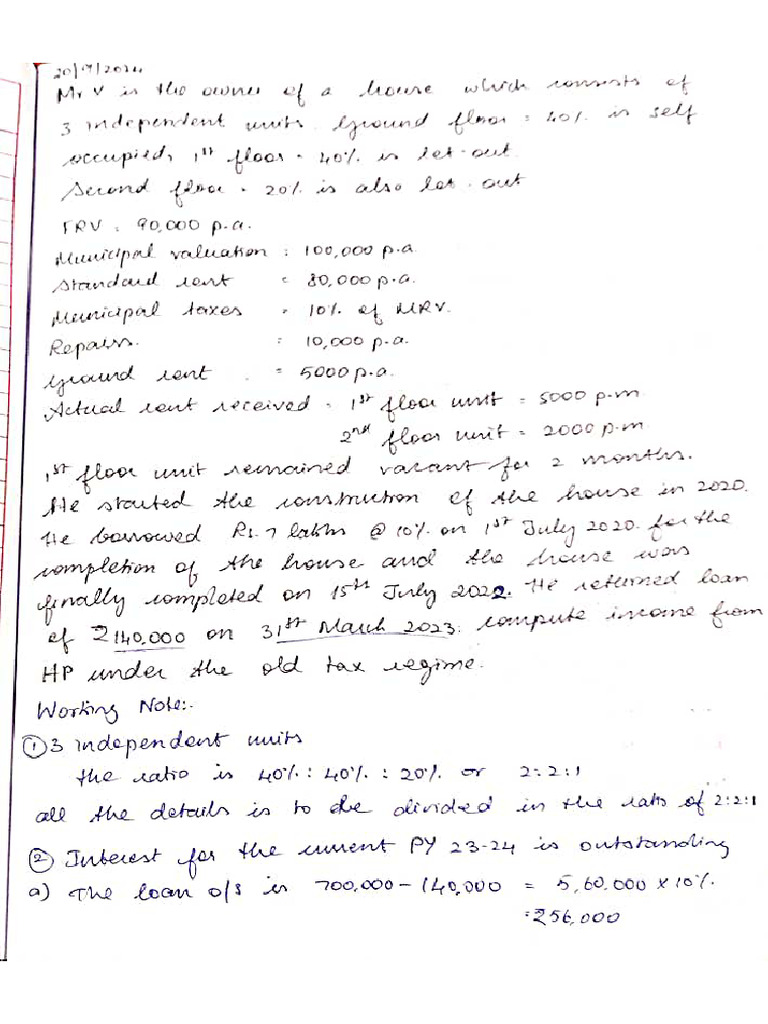 20/9/2024
Mr V is the owner of a house which consists of
3 independent units. Ground floor = 40% is self
occupied, 1st floor = 40% is let-out
Second floor = 20% is also let-out
FRV = 90,000 p.a.
Municipal valuation = 100,000 p.a
Standard rent = 80,000 p.a.
Municipal taxes = 10% of MRV.
Repairs. = 10,000 p.a.
Ground rent = 5000 p.a.
Actual rent received = 1st floor unit = 5000 p.m
2nd floor unit = 2000 p.m
1st floor unit remained vacant for 2 months.
He started the construction of the house in 2020.
He borrowed Rs. 7 lakhs @ 10% on 1st July 2020. for the
completion of the house and the house was
finally completed on 15th July 2022. He returned loan
of ₹140,000 on 31st March 2023. compute income from
HP under the old tax regime.
Working Note:-
① 3 independent units
the ratio is 40% : 40% : 20% or 2:2:1
all the details is to be divided in the ratio of 2:2:1
② Interest for the current PY 23-24 is outstanding
a) The loan o/s is 700,000 - 140,000 = 5,60,000 x 10%.
= ₹56,000